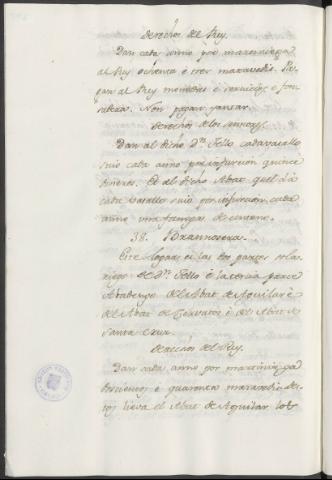 derechos del Rey.
Dan cada anno por marzadga
al Rey ochenta è tres maravedis. Pa-
gan al Rey monedas è servicios è fon-
sadera. Non pagan yantar.
derechos de los sennores.
Dan al dicho Dn. Tello cada vasallo
suio cada anno por infurcion quince
dineros. Et al dicho Abat quel dà
cada vasallo suio por infurcion cada
anno una fanega de centeno.
38. Brannosera.
Este logar es las dos partes sola-
riego de Dn. Tello è la tercia parte
Abadengo del Abat de Aguilar è
del Abat de Cervatos è del Abat de
Santa Cruz.
derechos del Rey.
Dan cada anno por martiniega
doscientos è quarenta maravedis des-
tos lieva el Abat de Aguilar los